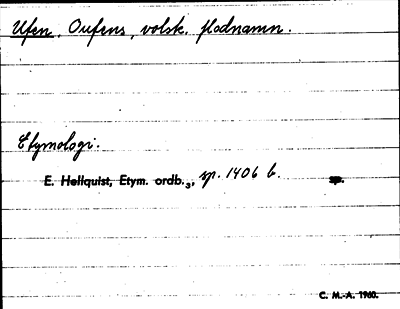 Ufen, Oufens, volsk. flodnamn.
Etymologi:
E. Hellquist, Etym. ordb.₃, sp. 1406 b.
C. M.-A. 1960.